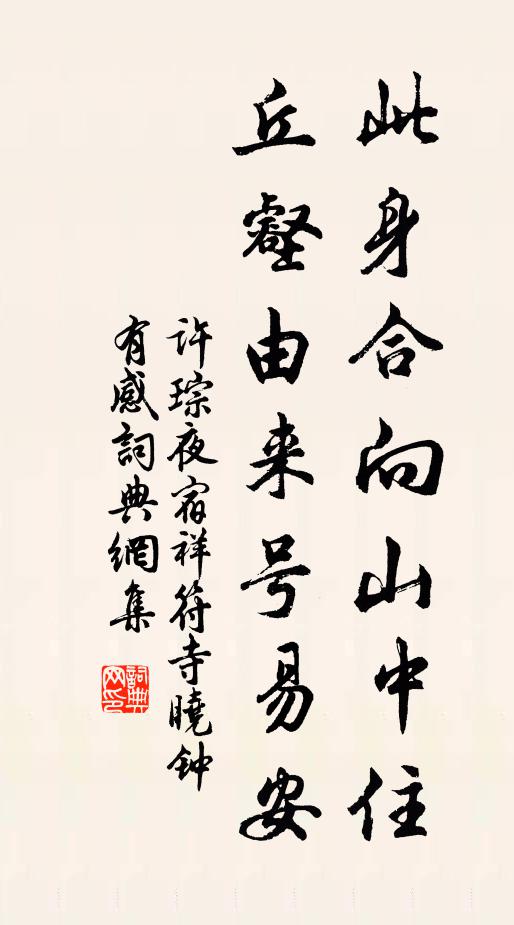 此身合向山中住
丘壑由来号易安
许琮夜宿祥符寺曉钟
有感詞典網集
詞典
网印